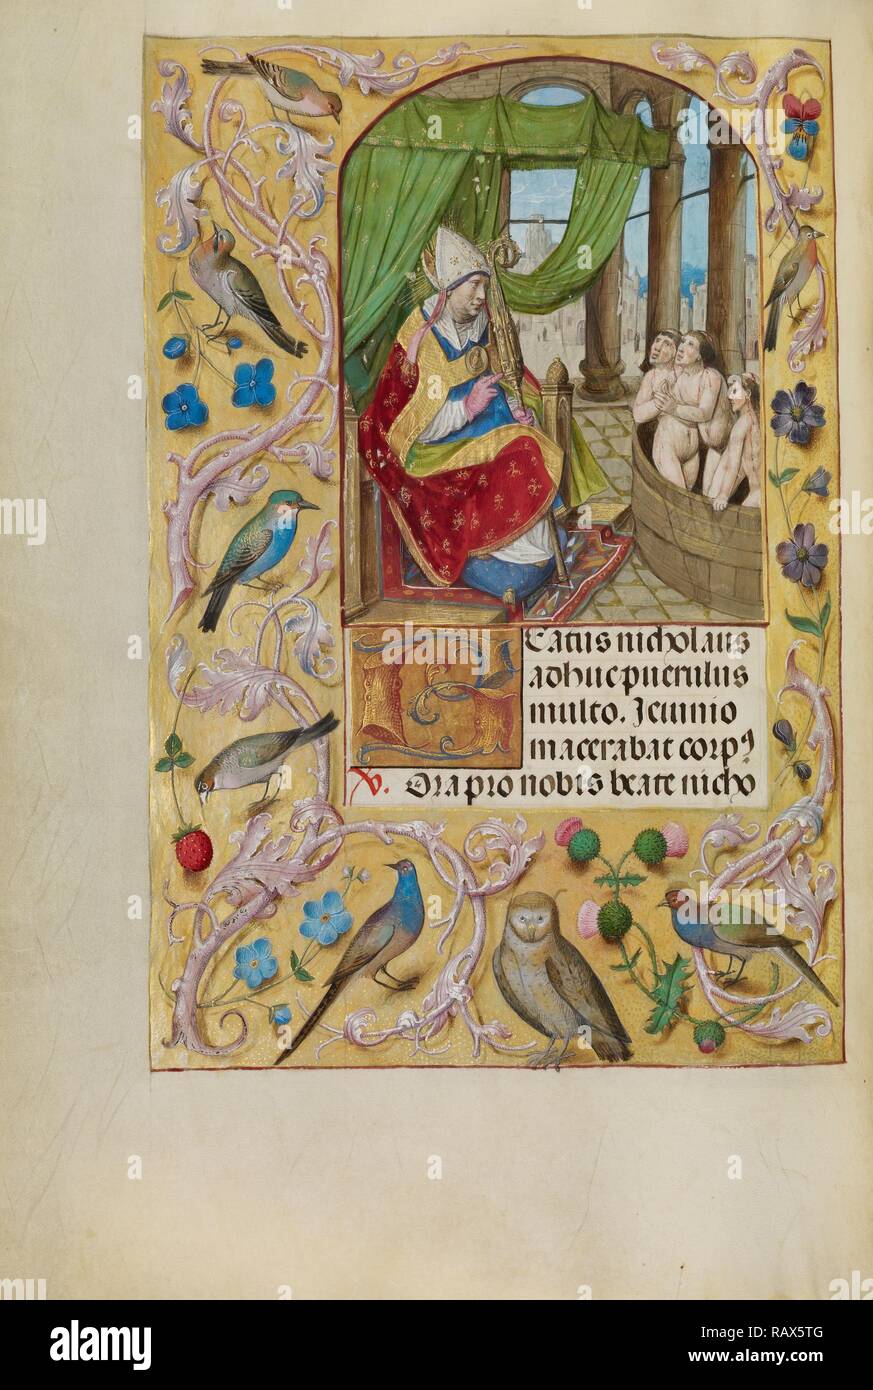 BEatus nicholaus
adhuc puerulus
multo. Ieiunio
macerabat corpꝰ
V. Ora pro nobis beate nicho
a alamy stock photo
RAX5TG
www.alamy.com